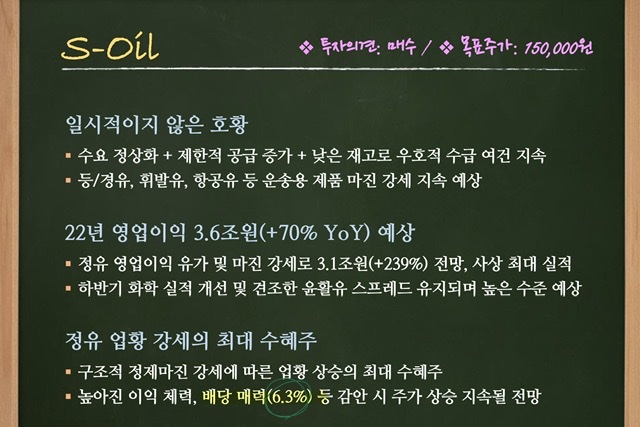 S-Oil
❖ 투자의견: 매수 / ❖ 목표주가: 150,000원
일시적이지 않은 호황
▪ 수요 정상화 + 제한적 공급 증가 + 낮은 재고로 우호적 수급 여건 지속
▪ 등/경유, 휘발유, 항공유 등 운송용 제품 마진 강세 지속 예상
22년 영업이익 3.6조원(+70% YoY) 예상
▪ 정유 영업이익 유가 및 마진 강세로 3.1조원(+239%) 전망, 사상 최대 실적
▪ 하반기 화학 실적 개선 및 견조한 윤활유 스프레드 유지되며 높은 수준 예상
정유 업황 강세의 최대 수혜주
▪ 구조적 정제마진 강세에 따른 업황 상승의 최대 수혜주
▪ 높아진 이익 체력, 배당 매력(6.3%) 등 감안 시 주가 상승 지속될 전망